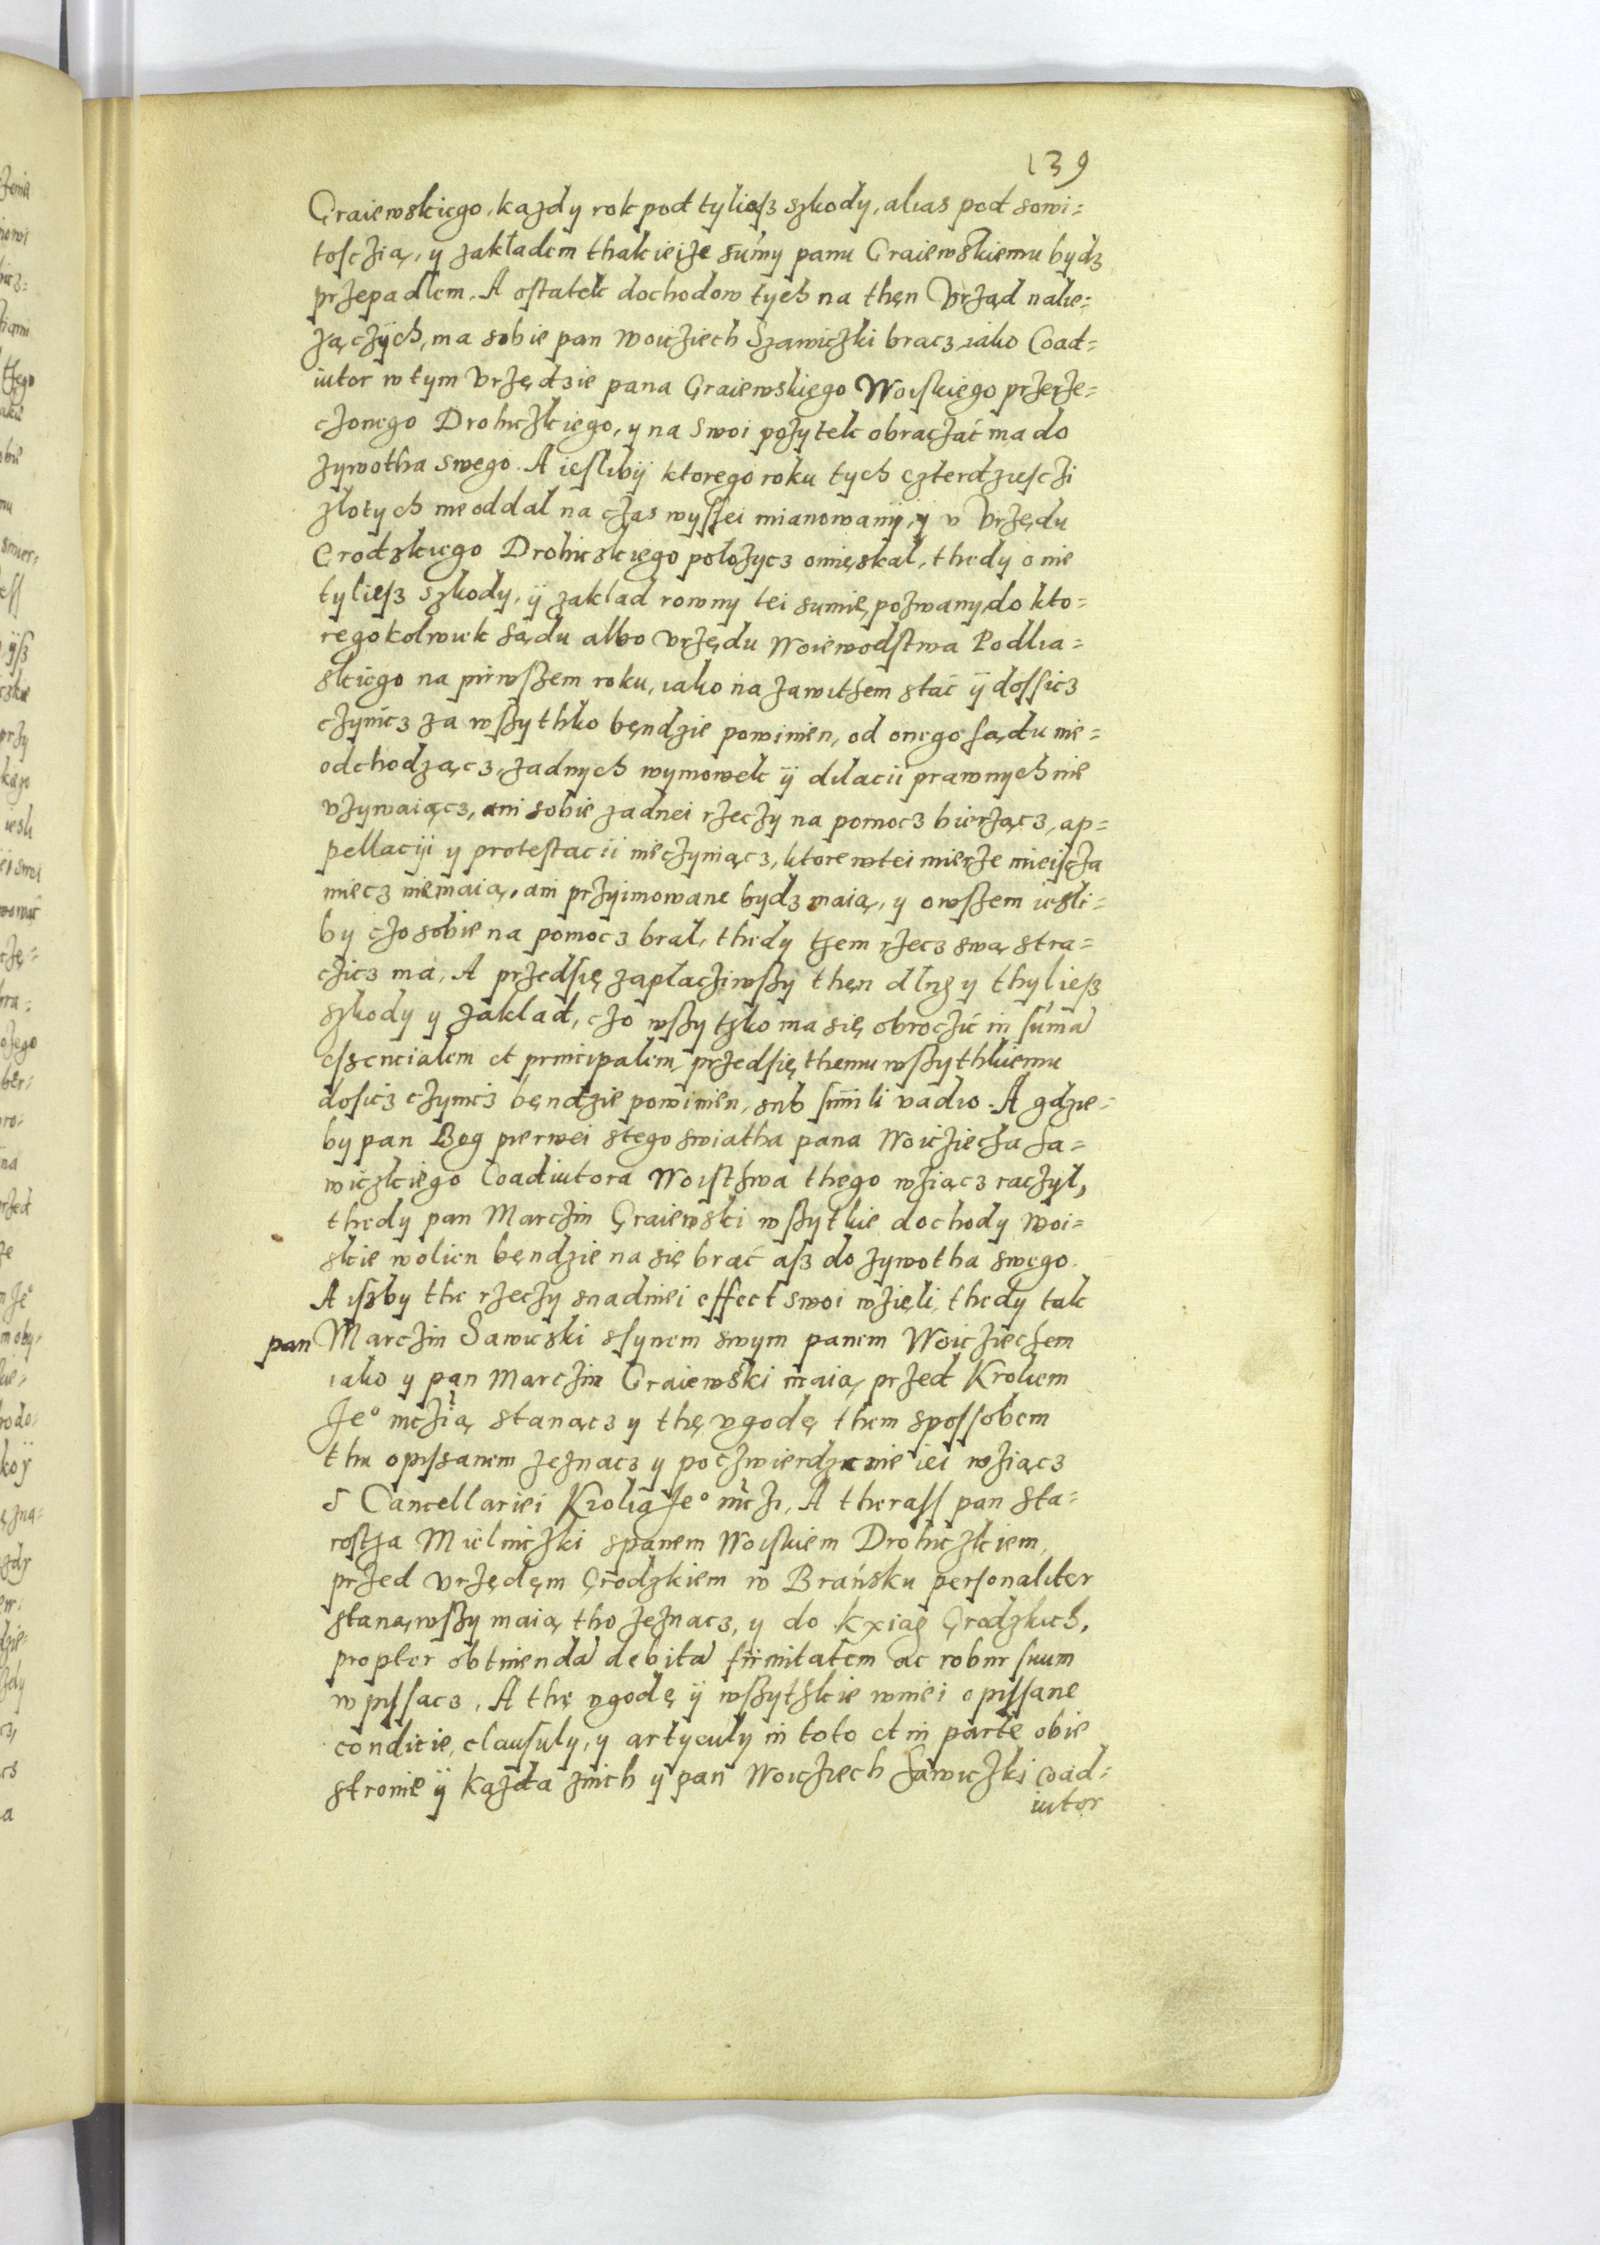 139
Graiewskiego, kazdy rok pod tyliesz szkody, alias pod sowi=
tosczią, y zakładem thakieiże sumy panu Graiewskiemu bydz
przepadlem. A ostatek dochodow tych na then Vrząd nale=
zączÿch, ma sobie pan Woiciech Szawiczki bracz iako Coad=
iutor w tym vrzędzie pana Graiewskiego Woiskiego przerze=
czonego Drohiczkiego, y na swoi pożytek obraczać ma do
zywotha swego. A iesliby ktorego roku tych czterdziesczi
zlotych nie oddal na czas wyssei mianowany, y v Vrzędu
Grodzkiego Drohiczkiego polozycz omięskal, thedy o nie
tyliesz szkody, ÿ zaklad rowny tei sumie, pozwany do kto=
regokolwiek sądu albo vrzędu Woiewodstwa Podlia=
skiego na pirwszem roku, iako na zawithem stać ÿ dossicz
czynicz za wszythko bendzie powinien, od onego sądu nie=
odchodzącz, zadnych wymowek ÿ dilacii prawnych nie
vzywaiącz, ani sobie zadnei rzeczy na pomocz bierzącz, ap=
pellaciji y protestacii nieczyniącz, ktore w tei mierze mieiscza
miecz niemaią, ani przyimowane bydz maią, y owszem iesli=
by czo sobie na pomocz bral, thedy tzem rzecz swą stra=
czicz ma, A przedsię zapłacziwszy then dlug y thyliesz
szkody y zaklad, czo wszytzko ma się obroczić in suma
essencialem et principalem przedsię themu wszythkiemu
dosicz czynicz bendzie powinien, sub simili vadio. A gdzie=
by pan Bog pierwei stego swiatha pana Woicziecha Sa=
wiczkiego Coadiutora Woistwa thego wziącz raczyl,
thedy pan Marczin Graiewski wszytkie dochody Woi=
skie wolien bendzie na się brać asz do zywotha swego.
A iszby the rzeczy snadniei effect swoi wzięli, thedy tak
pan Marczin Sawicski ssynem swym panem Woicziechem
iako y pan Marczin Graiewski maią przed Krolem
Je° mczią stanącz y thę vgodę them spossobem
thu opissanem zeznacz y poczwierdzenie iei wziącz
s Cancellariei Krolia Je° mczi, A therass pan sta=
rostza Mielniczki spanem Woiskiem Drohiczkiem,
przed vrzędęm Grodzkiem w Brańsku personaliter
stanąwszy maią tho zeznacz, y do kxiąg Grodzkich,
propter obtinenda debita firmitatem ac robur suum
wpissacz. A thę vgodę ÿ wszythkie wniei opissane
condicie, clausuly, y artyculy in toto et in parte obie
stronie ÿ każda znich y pan Woicziech Sawiczki coad=
iutor